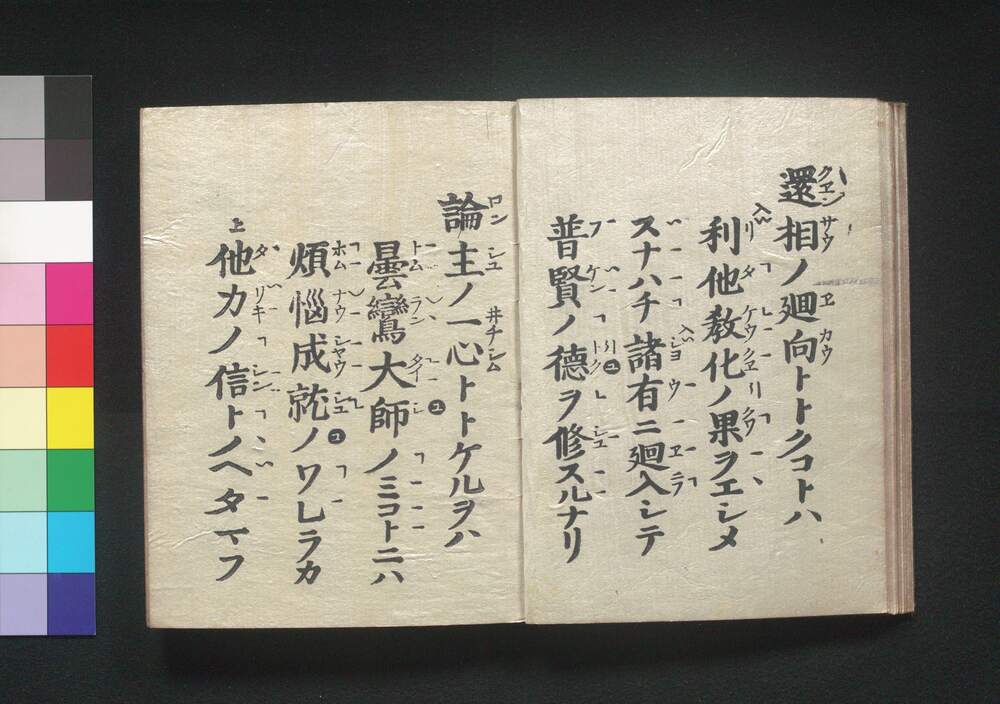 還相ノ廻向トトクコトハ
利他教化ノ果ヲエシメ
スナハチ諸有ニ廻入シテ
普賢ノ德ヲ修スルナリ
論主ノ一心トトケルヲハ
曇鸞大師ノミコトニハ
煩惱成就ノワレラカ
他力ノ信トノヘタマフ